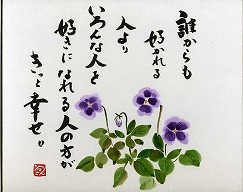 誰からも
好かれる
人より
いろんな人を
好きになれる人の方が
きっと幸せ。